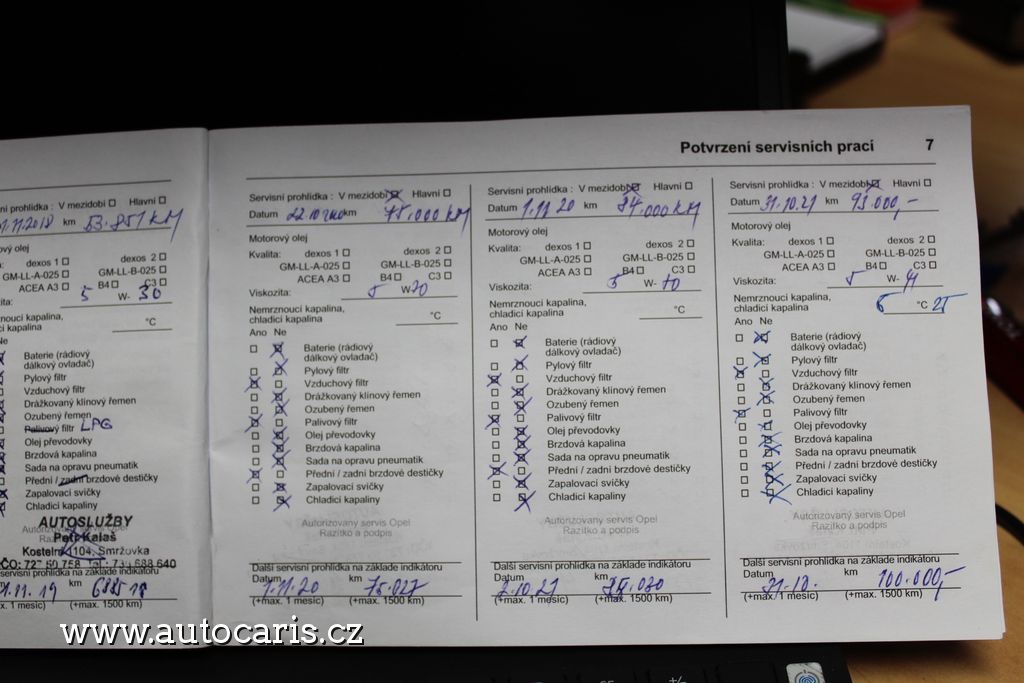 Potvrzení servisních prací 7
Servisní prohlídka : V mezidobí Hlavní
1.11.2018 km 53.851 KM
ový olej
dexos 1 dexos 2
GM-LL-A-025 GM-LL-B-025
ACEA A3 B4 C3
zita: 5 W- 30
noucí kapalina,
cí kapalina °C
Ne
Baterie (rádiový
dálkový ovladač)
Pylový filtr
Vzduchový filtr
Drážkovaný klínový řemen
Ozubený řemen
Palivový filtr LPG
Olej převodovky
Brzdová kapalina
Sada na opravu pneumatik
Přední / zadní brzdové destičky
Zapalovací svíčky
Chladicí kapaliny
AUTOSLUŽBY
Petr Kalaš
Kostelní 1104, Smržovka
servisní prohlídka na základě indikátoru
1.11.19 km
x. 1 měsíc) (+max. 1500 km)
Servisní prohlídka : V mezidobí Hlavní
Datum km 75.000 KM
Motorový olej
Kvalita: dexos 1 dexos 2
GM-LL-A-025 GM-LL-B-025
ACEA A3 B4 C3
Viskozita: 5 W
Nemrznoucí kapalina,
chladicí kapalina °C
Ano Ne
Baterie (rádiový
dálkový ovladač)
Pylový filtr
Vzduchový filtr
Drážkovaný klínový řemen
Ozubený řemen
Palivový filtr
Olej převodovky
Brzdová kapalina
Sada na opravu pneumatik
Přední / zadní brzdové destičky
Zapalovací svíčky
Chladicí kapaliny
Autorizovaný servis Opel
Razítko a podpis
Další servisní prohlídka na základě indikátoru
Datum km
1.11.20
(+max. 1 měsíc) (+max. 1500 km)
Servisní prohlídka : V mezidobí Hlavní
Datum 1.11 20 km 84.000 KM
Motorový olej
Kvalita: dexos 1 dexos 2
GM-LL-A-025 GM-LL-B-025
ACEA A3 B4 C3
Viskozita: 5 W-
Nemrznoucí kapalina,
chladicí kapalina °C
Ano Ne
Baterie (rádiový
dálkový ovladač)
Pylový filtr
Vzduchový filtr
Drážkovaný klínový řemen
Ozubený řemen
Palivový filtr
Olej převodovky
Brzdová kapalina
Sada na opravu pneumatik
Přední / zadní brzdové destičky
Zapalovací svíčky
Chladicí kapaliny
Autorizovaný servis Opel
Razítko a podpis
Další servisní prohlídka na základě indikátoru
Datum km
(+max. 1 měsíc) (+max. 1500 km)
Servisní prohlídka : V mezidobí Hlavní
Datum 31.10.21 km 93.000,-
Motorový olej
Kvalita: dexos 1 dexos 2
GM-LL-A-025 GM-LL-B-025
ACEA A3 B4 C3
Viskozita: 5 W-
Nemrznoucí kapalina,
chladicí kapalina °C 25
Ano Ne
Baterie (rádiový
dálkový ovladač)
Pylový filtr
Vzduchový filtr
Drážkovaný klínový řemen
Ozubený řemen
Palivový filtr
Olej převodovky
Brzdová kapalina
Sada na opravu pneumatik
Přední / zadní brzdové destičky
Zapalovací svíčky
Chladicí kapaliny
Autorizovaný servis Opel
Razítko a podpis
Další servisní prohlídka na základě indikátoru
Datum km
31.10. 100.000,-
(+max. 1 měsíc) (+max. 1500 km)
www.autocaris.cz